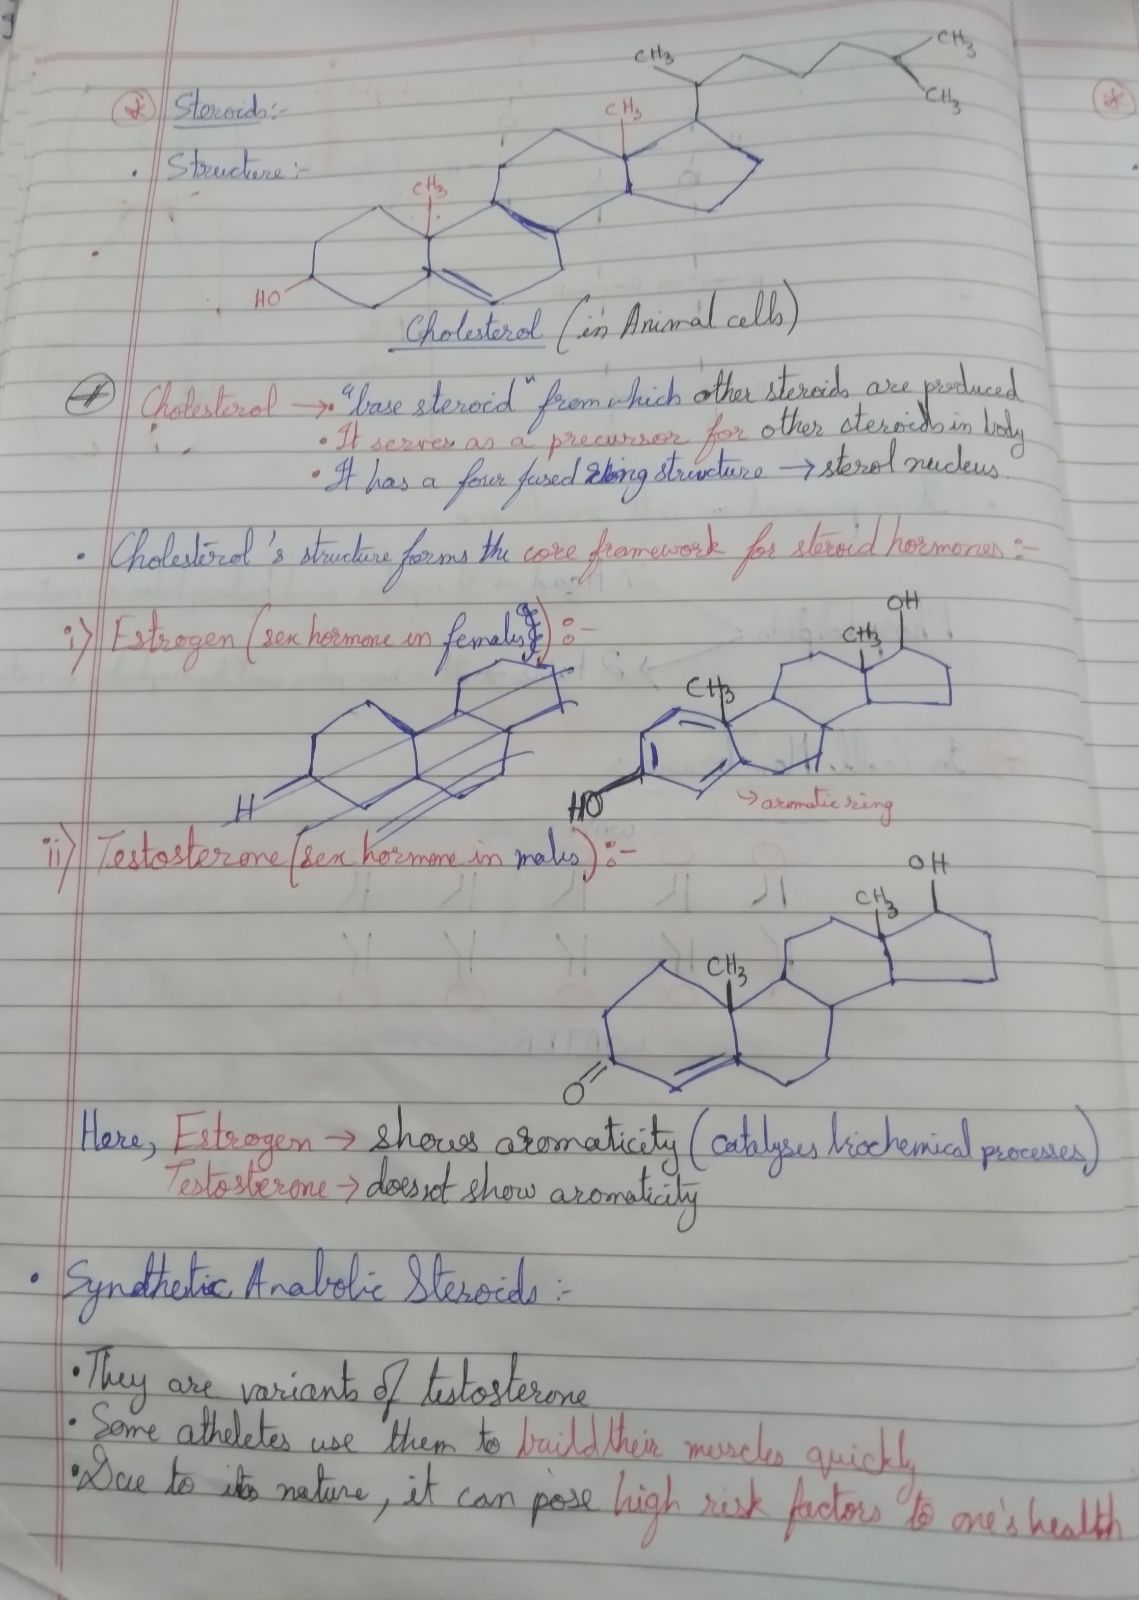 Steroids:-
• Structure:-
CH3
CH3
CH3
CH3
CH3
HO
Cholesterol (in Animal cells)
Cholesterol → • "base steroid" from which other steroids are produced
• It serves as a precursor for other steroids in body
• It has a four fused ring structure → sterol nucleus.
• Cholesterol's structure forms the core framework for steroid hormones :-
i) Estrogen (sex hormone in females) :-
OH
CH3
CH3
H
HO
→ aromatic ring
ii) Testosterone (sex hormone in males) :-
OH
CH3
CH3
O
Here, Estrogen → shows aromaticity (catalyses biochemical processes)
Testosterone → does not show aromaticity
• Syndthetic Anabolic Steroids :-
• They are variants of testosterone
• Some atheletes use them to build their muscles quickly
• Due to its nature, it can pose high risk factors to one's health